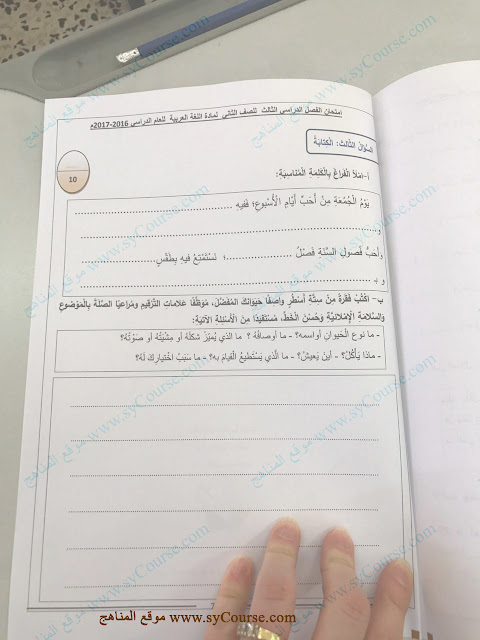 امتحان الفصل الدراسي الثالث للصف الثاني لمادة اللغة العربية للعام الدراسي 2016-2017م
السؤال الثالث: الكِتابَةُ
10
أ- اِملأ الفَراغَ بِالكَلِمَةِ المُناسِبَةِ:
يَوْمُ الْجُمُعَةِ مِنْ أَحَبِّ أَيَّامِ الْأُسْبوعِ؛ فَفيهِ ........................................
و ........................................
وَأَحَبُّ فُصولِ السَّنَةِ فَصْلُ ....................؛ نَسْتَمْتِعُ فيهِ بِطَقْسٍ....................
و بـ ........................................
ب- اكْتُبْ فَقْرَةً مِنْ سِتَّةِ أَسْطُرٍ واصِفًا حَيَوانَكَ المُفَضَّلَ، مُوَظِّفًا عَلاماتِ التَّرْقيمِ وَمُراعِيًا الصِّلَةَ بِالْمَوْضوعِ
والسَّلامَةِ الإِمْلائِيَّةِ وَحُسْنَ الخَطِّ، مُسْتَفيدًا مِنَ الأَسْئِلَةِ الآتِيَةِ:
- ما نوع الحَيَوانِ أواسمه؟ - ما أوصافُهُ ؟ - ما الذي يُمَيِّزُ شَكْلَهُ أو مِشْيَتَهُ أو صَوْتَهُ؟
- ماذا يَأكُلُ؟ - أينَ يَعيشُ؟ - ما الَّذي يَسْتَطيعُ القِيامَ به؟ - ما سَبَبُ اخْتِيارِكَ لَهُ؟
موقع المناهج www.syCourse.com